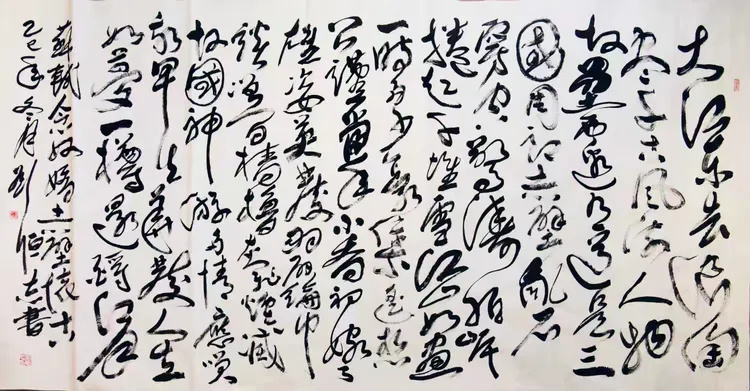 大江东去浪淘
尽千古风流人物
故壘西边人道是三
國周郎赤壁乱石
穿空驚濤拍岸
捲起千堆雪江山如画
一時多少豪傑遥想
公瑾當年小喬初嫁了
雄姿英發羽扇綸巾
談笑间檣櫓灰飛煙滅
故國神游多情應笑
我早生華發人生
如夢一樽還酹江月
蘇軾念奴嬌赤壁懷古
乙巳年冬月劉恒志書